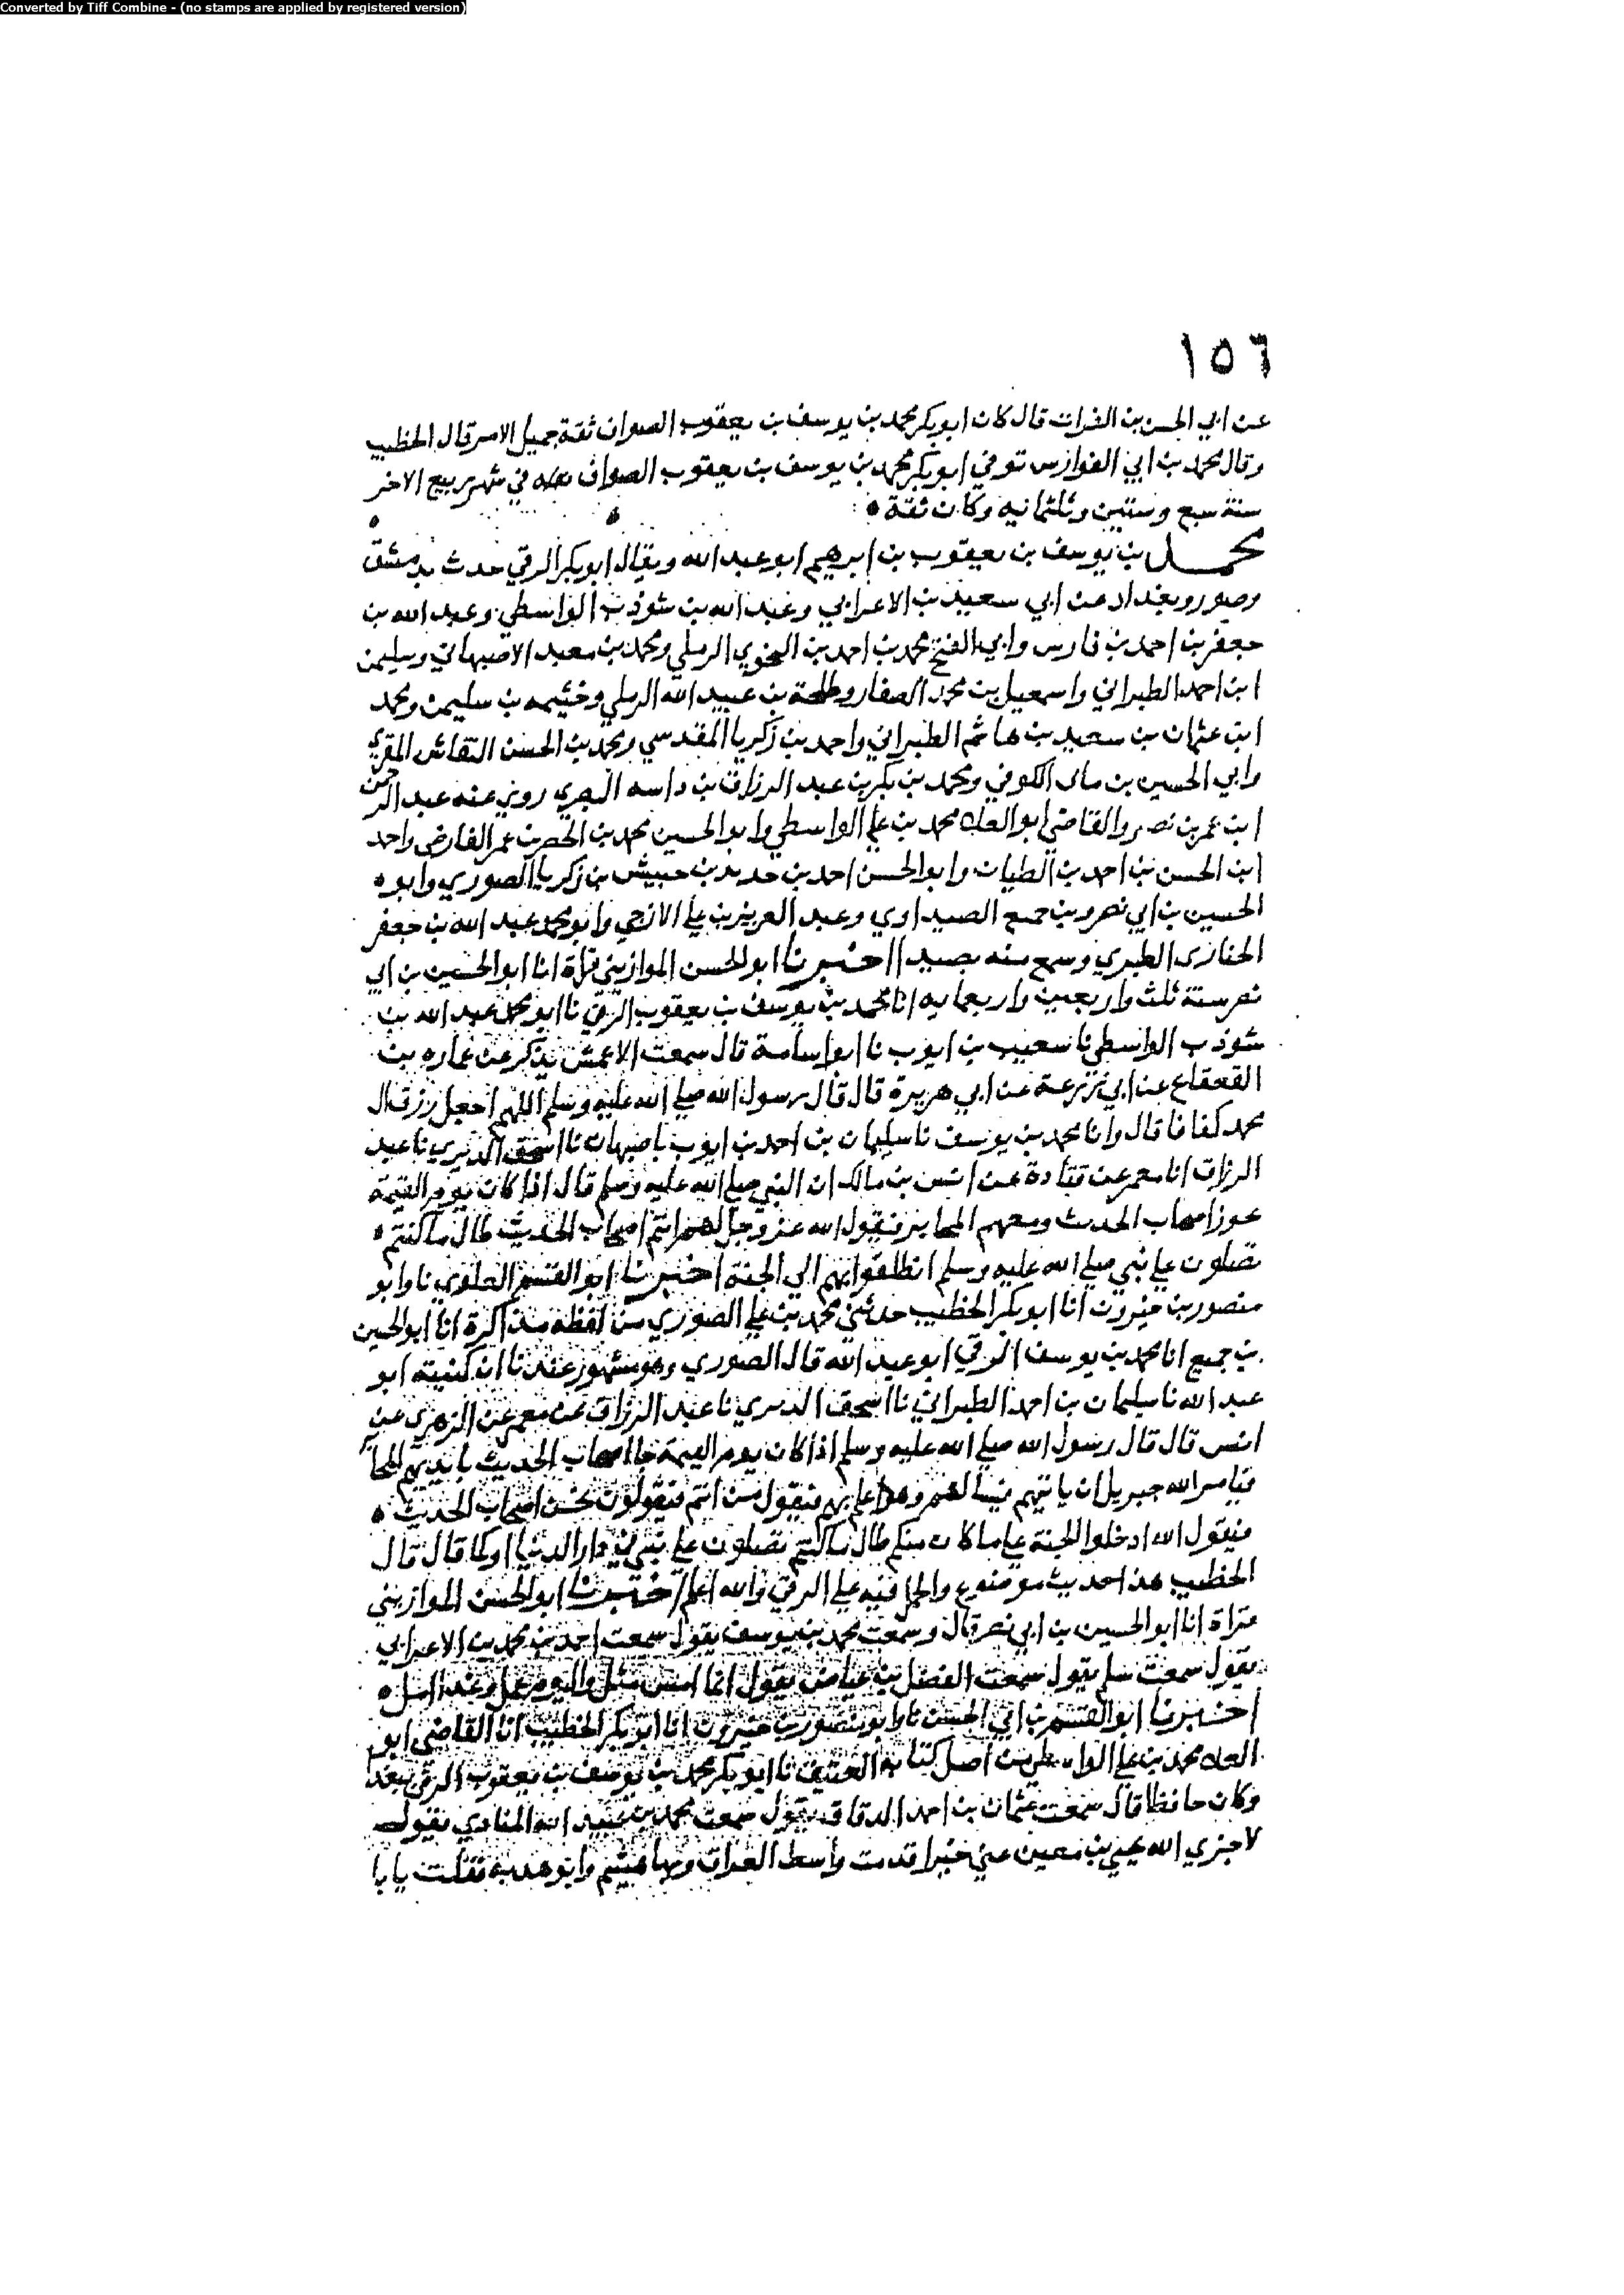 Converted by Tiff Combine - (no stamps are applied by registered version)
١٥٦
عن ابي الحسن بن الفرات قال كان ابو بكر محمد بن يوسف بن يعقوب الصواف ثقة جميل الامر قال الخطيب
وقال محمد بن ابي الفوارس توفي ابو بكر محمد بن يوسف بن يعقوب الصواف في شهر ربيع الاخر
سنة سبع وستين وثلثمايه وكان ثقة ه
محمد بن يوسف بن يعقوب بن ابرهيم ابو عبد الله ويقال ابو بكر الرقي حدث بدمشق
وصور وبغداد عن ابي سعيد بن الاعرابي وعبد الله بن شوذب الواسطي وعبد الله بن
جعفر بن احمد بن فارس وابي الفتح محمد بن احمد بن النحوي الرملي ومحمد بن معبد الاصبهاني وسليمن
ابن احمد الطبراني واسمعيل بن محمد الصفار وطلحة بن عبيد الله الرملي وخثيمه بن سليمن ومحمد
ابن عثمان بن سعيد بن هاشم الطبراني واحمد بن زكريا المقدسي ومحمد بن الحسن النقاش المقري
وابي الحسين بن ماتى الكوفي ومحمد بن بكر بن عبد الرزاق بن داسه البصري روى عنه عبد الرحمن
ابن عمر بن نصر والقاضي ابو العلا محمد بن علي الواسطي وابو الحسين محمد بن الحسن بن عمر الفارضي واحمد
ابن الحسن بن احمد بن الطيان وابو الحسن احمد بن حديد بن حبيش بن زكريا الصوري وابو ه
الحسين بن ابي نصر وبن جميع الصيداوي وعبد العزيز بن علي الازجي وابو محمد عبد الله بن جعفر
الخنازى الطبري وسمع منه بصيدا اخبرنا ابو الحسن الموازيني قراة انا ابو الحسين بن ابي
نصر سنة ثلث واربعين واربعمايه انا محمد بن يوسف بن يعقوب الرقي نا ابو محمد عبد الله بن
شوذب الواسطي نا شعيب بن ايوب نا ابو اسامة قال سمعت الاعمش يذكر عن عماره بن
القعقاع عن ابي زرعة عن ابي هريرة قال قال رسول الله صلى الله عليه وسلم اللهم اجعل رزق ال
محمد كفافا قال وانا محمد بن يوسف نا سليمان بن احمد بن ايوب باصبهان نا اسحق الدبري نا عبد
الرزاق انا معمر عن قتادة عن انس بن مالك ان النبي صلى الله عليه وسلم قال اذا كان يوم القيمة
اصحاب الحديث ومعهم المحابر فيقول الله عز وجل لهم انتم اصحاب الحديث طال ما كنتم ه
تصلون على نبيي صلى الله عليه وسلم انطلقوا بهم الى الجنة اخبرنا ابو القسم العلوي نا وابو
منصور بن خيرون انا ابو بكر الخطيب حدثني محمد بن علي الصوري من لفظه مذاكرة انا ابو الحسين
بن جميع انا محمد بن يوسف الرقي ابو عبد الله قال الصوري وهو مشهور عندنا ان كنيته ابو
عبد الله نا سليمان بن احمد الطبراني نا اسحق الدبري نا عبد الرزاق عن معمر عن الزهري عن
انس قال قال رسول الله صلى الله عليه وسلم اذا كان يوم القيمة جا اصحاب الحديث بايديهم المحابر
فيامر الله جبريل ان ياتيهم فيسالهم وهو اعلم بهم فيقول من انتم فيقولون نحن اصحاب الحديث ه
فيقول الله ادخلوا الجنة على ما كان منكم طال ما كنتم تصلون على نبيي في دار الدنيا او كما قال قال
الخطيب هذا حديث موضوع والحمل فيه على الرقي والله اعلم اخبرنا ابو الحسن الموازيني
قراة انا ابو الحسين بن ابي نصر قال وسمعت محمد بن يوسف يقول سمعت احمد بن محمد بن الاعرابي
يقول سمعت سلم يقول سمعت الفضل بن عياض يقول انما امس مثل واليوم عمل وغدا امل ه
اخبرنا ابو القسم بن ابي الحسن نا وابو منصور بن خيرون انا ابو بكر الخطيب انا القاضي ابو
العلا محمد بن علي الواسطي من اصل كتابه العتيق نا ابو بكر محمد بن يوسف بن يعقوب الرقي ببغداد
وكان حافظا قال سمعت عثمان بن احمد الدقاق يقول سمعت محمد بن عبيد الله المنادي يقول
لا جزي الله يحيى بن معين عني خيرا قدمت واسط العراق وبها هشيم وابو هدبه فقلت يابا